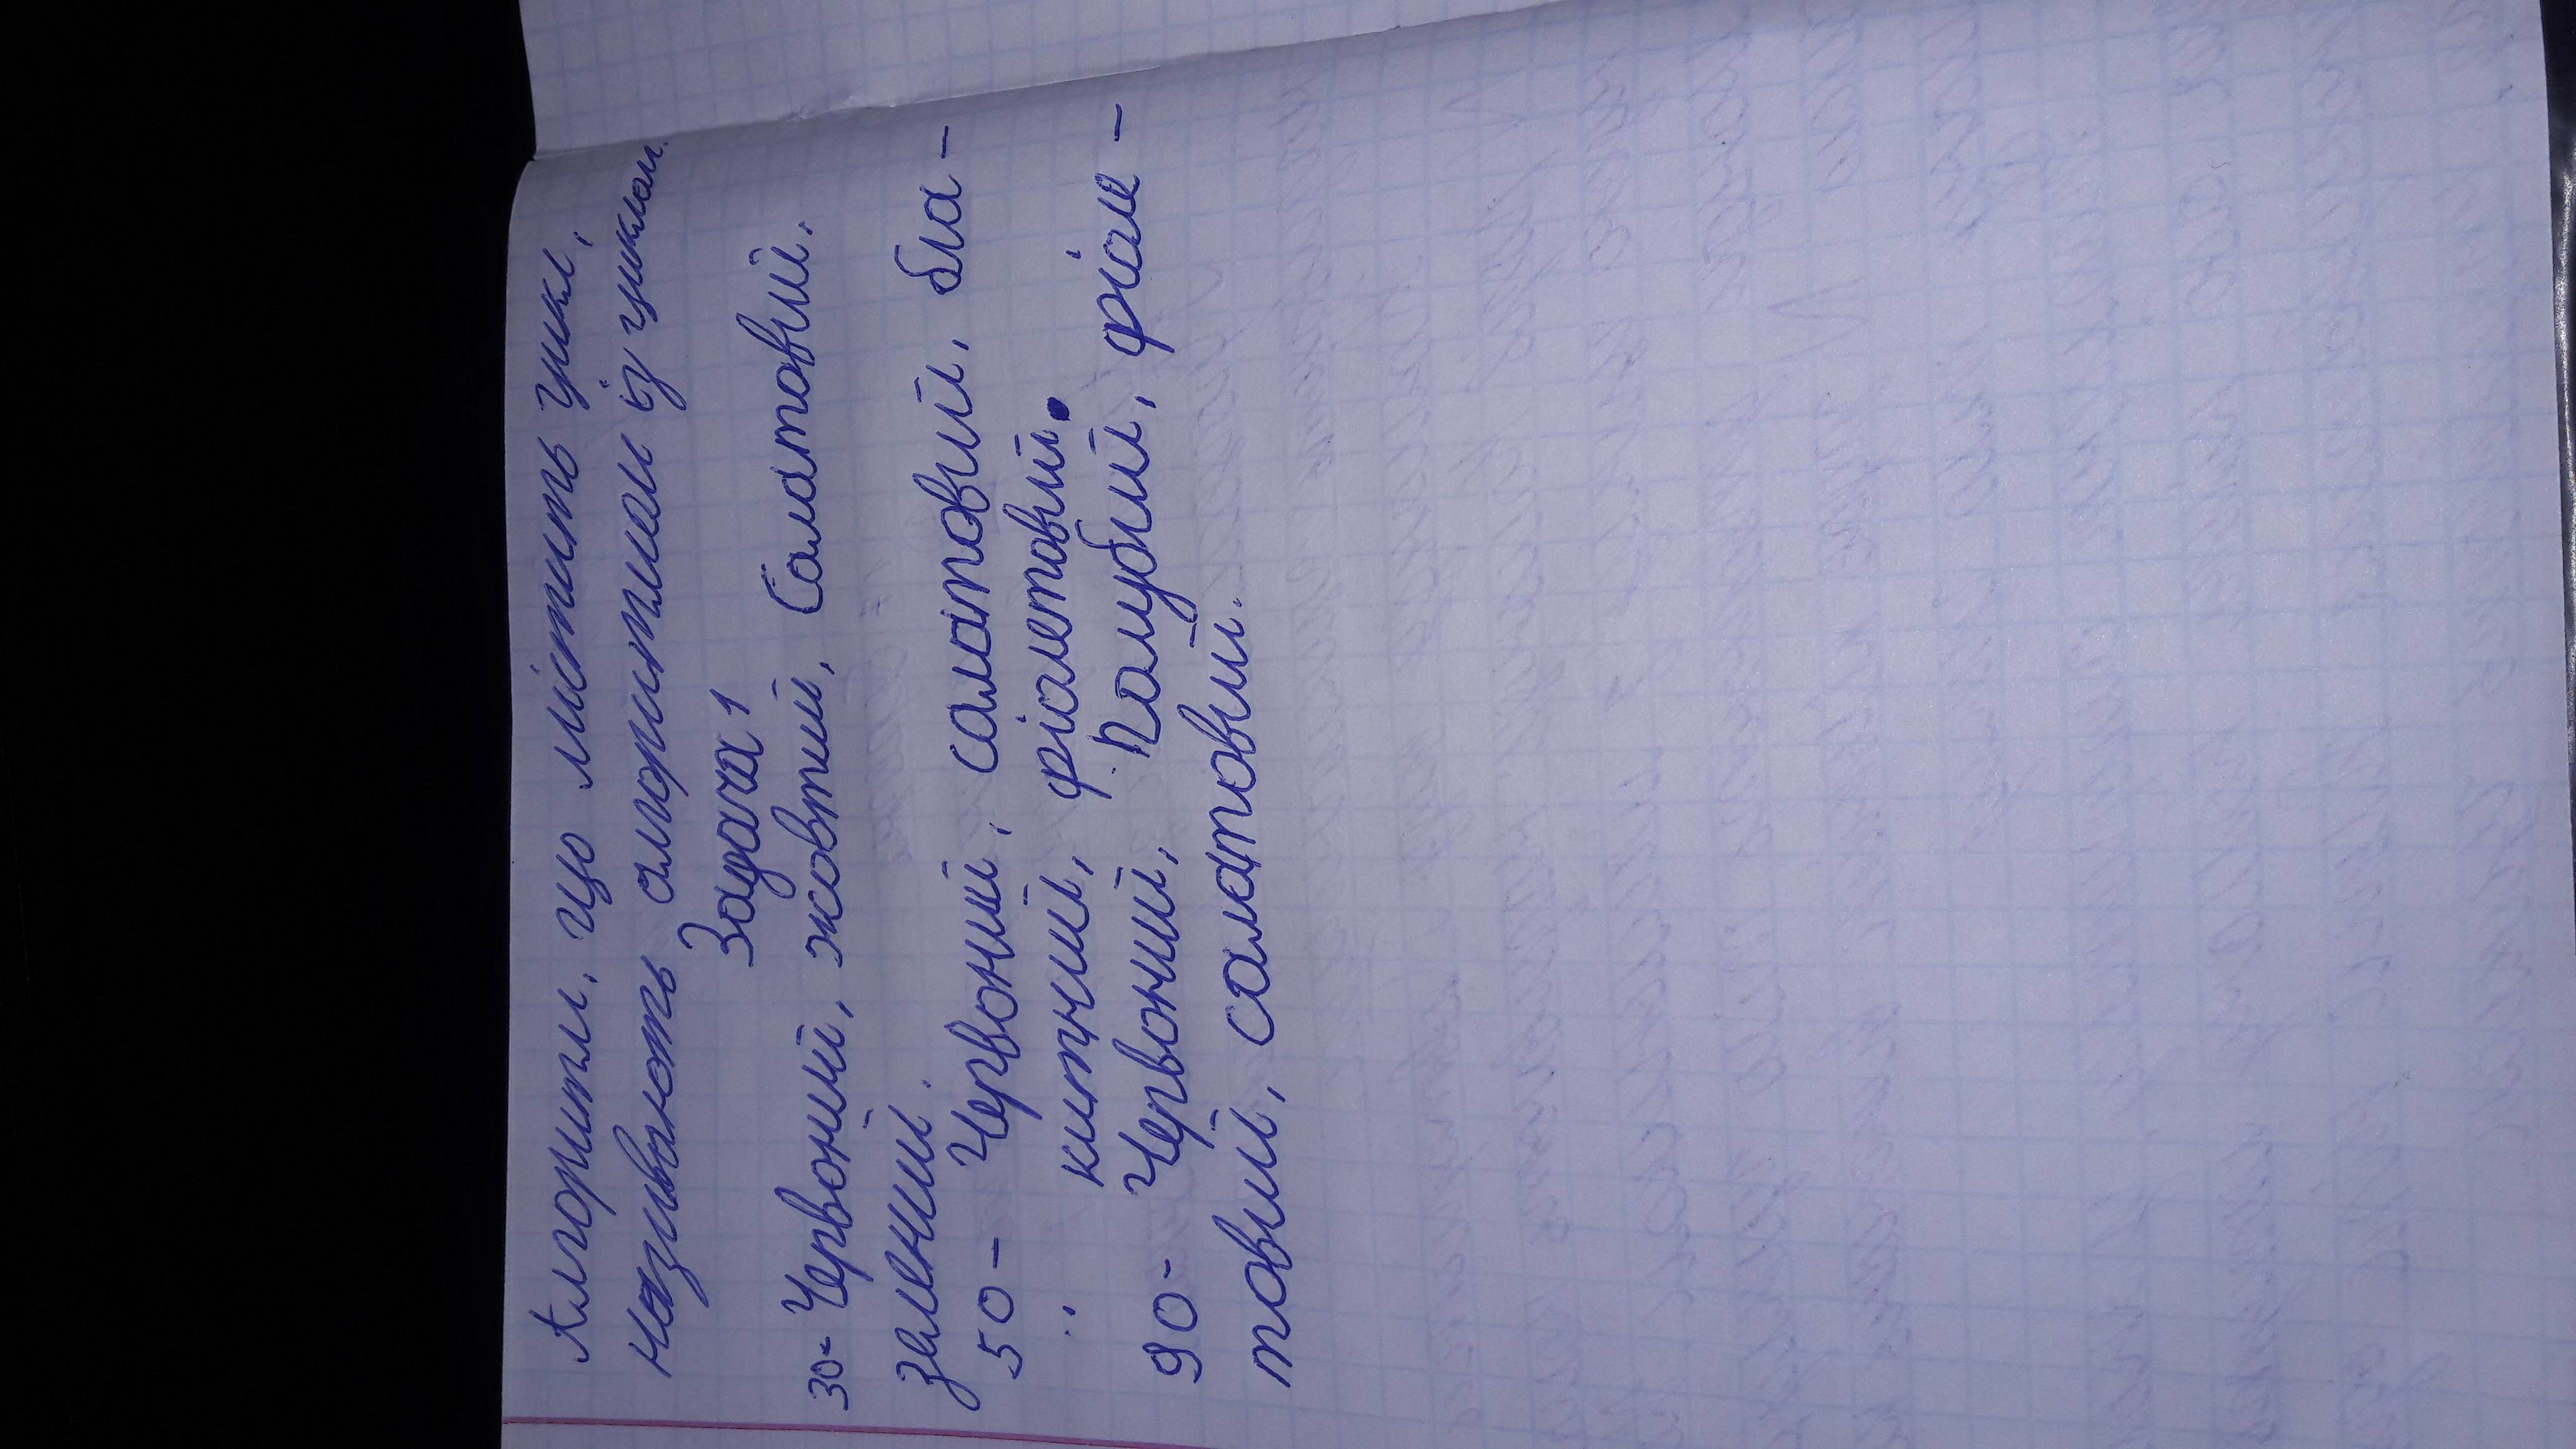 Алгоритм, що містить цикл,
називають алгоритмом із циклом.
Задача 1
30- Червоний, жовтий, Салатовий,
зелений.
50- Червоний, салатовий, бла-
" китний, фіолетовий.
90- Червоний, Голубий, фіоле-
товий, салатовий.